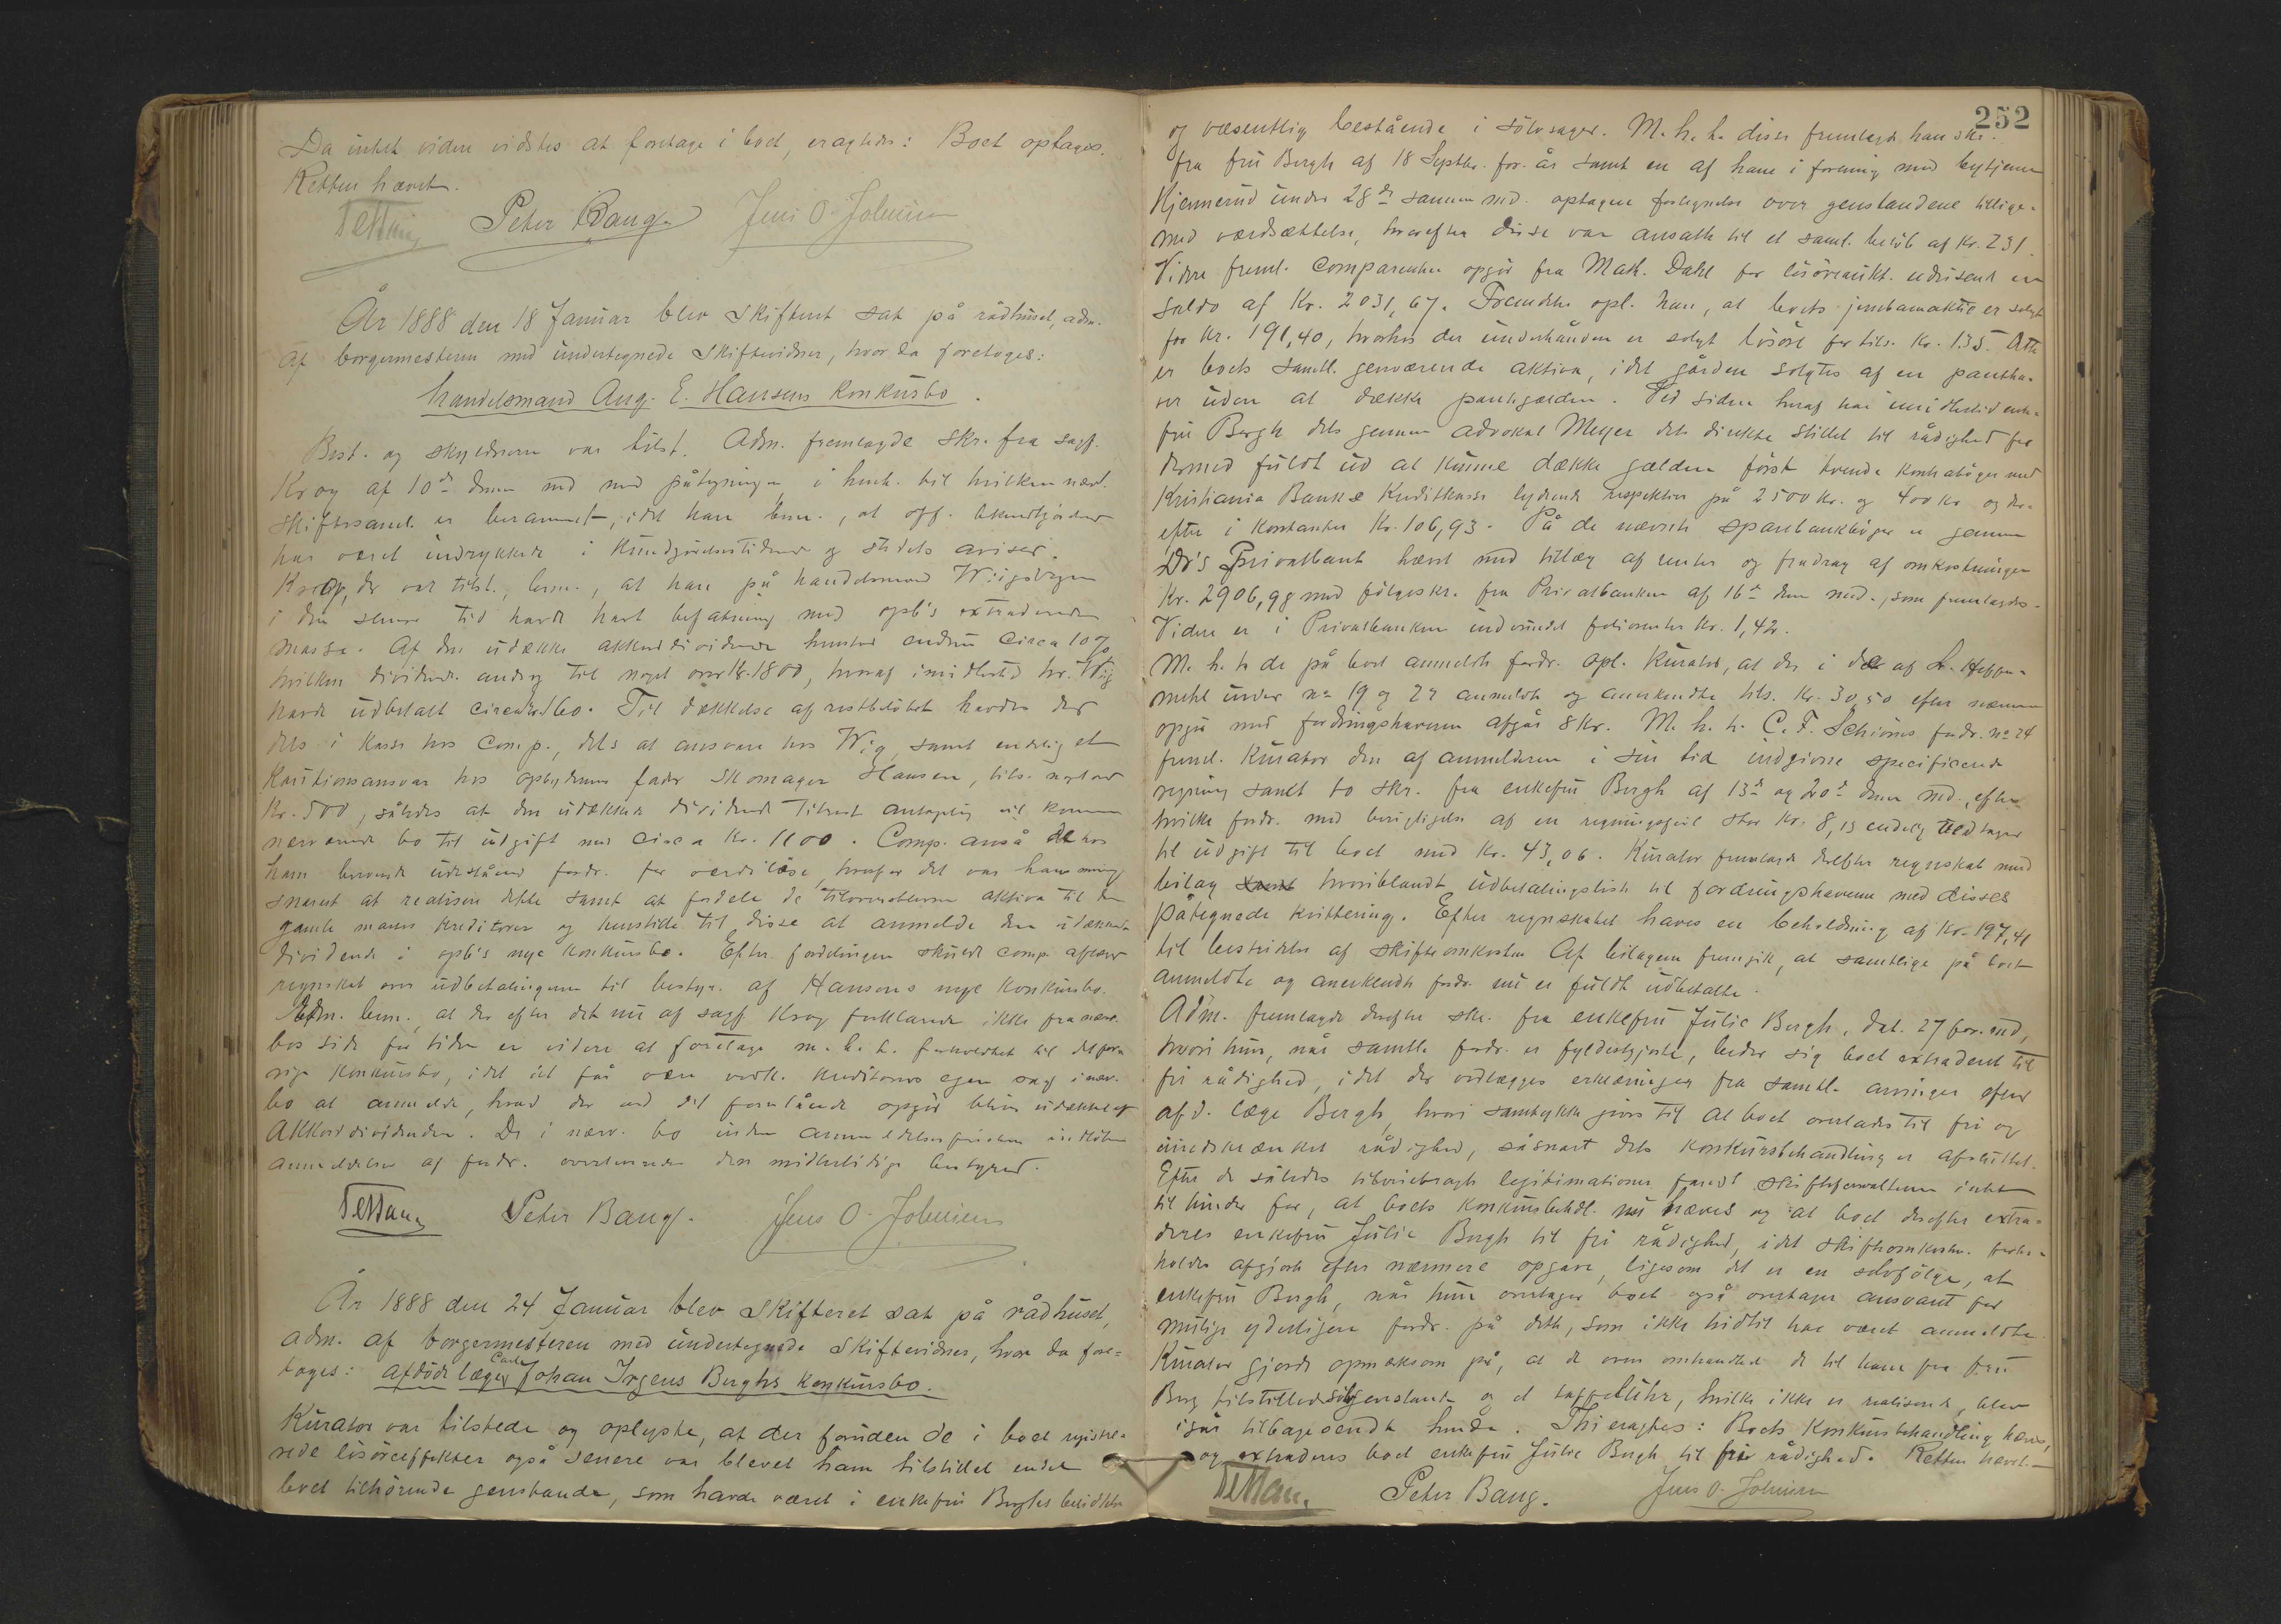 Da intet videre vidstes at foretage i boet, eragtedes: Boet optages.
Retten hævet.
Peter Bang Jens O. Johnsen
År 1888 den 18 Januar blev Skifteret sat på rådhuset, adm.
af borgermesteren med undertegnede Skiftevidner, hvor da foretoges:
handelsmand Aug. E. Hansens konkursbo.
Best. og skyldneren var tilst. Adm. fremlagde skr. fra sagf.
Krog af 10de dennes md med påtegninger i henh. til hvilken nærv.
skiftesaml. er berammet, idet han bem., at off. bekendtgjørelse
har været indrykket i Kundgjørelsestidende og stedets aviser.
Krog, der var tilst., bem., at han på handelsmand Wiigs vegne
i den senere tid havde havt befatning med opb's extraderede
masse. Af den udækkede akkorddividende henstod endnu circa 10 %
hvilken dividende androg til noget over Kr. 1800, hvoraf imidlertid hr. Wiig
havde udbetalt circa 60. Til dækkelse af restbeløbet havdes der
dels i kasse hos Comp., dels at ansvare hos Wiig, samt endelig et
Kautionsansvar hos opbyderens fader Skomager Hansen, tils.
Kr. 500, således at den udækkede dividende tilrest antagelig vil komme
nærværende bo til udgift med circa Kr. 1100. Comp. anså de hos
ham beroende udestående fordr. for værdiløse, hvorfor det var hans mening
snarest at realisere dette samt at fordele de tiloversblevne aktiva til den
gamle masses kreditorer og henstille til disse at anmelde den udækkede
dividende i opb's nye konkursbo. Efter fordelingen skulde comp. aflægge
regnskab over udbetalingerne til bestyr. af Hansens nye konkursbo.
Adm. bem., at der efter det nu af sagf. Krog forklarede ikke fra nærv.
bos side for tiden er videre at foretage m. h. t. forholdet til det forrige
konkursbo, idet det får være vedk. kreditorers egen sag i nærv.
bo at anmelde, hvad der ved det forestående opgjør bliver udækket af
Akkorddividenden. De i nærv. bo inden anmeldelsesfristen indkomne
anmeldelser af fordr. overleveredes den midlertidige bestyrer.
Peter Bang. Jens O. Johnsen
År 1888 den 24 Januar blev Skifteret sat på rådhuset,
adm. af borgermesteren med undertegnede Skiftevidner, hvor da fore=
toges: afdøde læge Carl Johan Irgens Berghs konkursbo.
Kurator var tilstede og oplyste, at der foruden de i boet registre=
rede løsøreeffekter også senere var blevet ham tilstillet endel
boet tilhørende genstande, som havde været i enkefru Berghs besiddelse
252
og væsentlig bestående i sølvsager. M. h. t. disse fremlagde han skr.
fra fru Bergh af 18 Septbr. for. år samt en af ham i forening med bytjener
Kjennerud under 28de samme md. optagen fortegnelse over genstandene tillige=
med værdsættelse, hvorefter disse var ansatte til et saml. beløb af Kr. 231.
Videre freml. Comparenten opgjør fra Mak. Dahl for løsøreaukt. udvisende en
saldo af Kr. 2031,67. Fremdeles opl. han, at boets jernbaneaktie er solgt
for Kr. 191,40, hvorhos der underhånden er solgt løsøre for tils. Kr. 135. Dette
er boets samtl. genværende aktiva, idet gården solgtes af en pantha=
ver uden at dække pantegælden. Ved siden heraf har imidlertid enke=
fru Bergh dels gennem advokat Meyer dels direkte stillet til rådighed for
dermed fuldt ud at kunne dække gælden først tvende kontrabøger med
Kristiania Bank & Kreditkasse lydende respektive på 2500 Kr. og 400 Kr. og der=
efter i kontanter Kr. 106,93. På de nævnte sparebankbøger er gennem
Dr's Privatbank hævet med tillæg af renter og fradrag af omkostninger
Kr. 2906,98 med følgeskr. fra Privatbanken af 16de dennes md., som fremlagdes.
Videre er i Privatbanken indvundet foliorenter Kr. 1,42.
M. h. t. de på boet anmeldte fordr. opl. Kurator, at der i de af
under No 19 og 22 anmeldte og anerkendte tils. Kr. 30,50 efter nærmere
opgjør med fordringshaveren afgår 8 Kr. M. h. t. C. F. Schiørns fordr. No 24
freml. Kurator den af anmelderen i sin tid indgivne specificerede
regning samt to skr. fra enkefru Bergh af 13de og 20de dennes md., efter
hvilke fordr. med berigtigelse af en regningsfeil stor Kr. 8,13 endelig
til udgift til boet med Kr. 43,06. Kurator fremlagde derefter regnskab med
bilag hvoriblandt udbetalingsliste til fordringshaverne med disses
påtegnede kvittering. Efter regnskabet haves en beholdning af Kr. 197,41
til bestridelse af skifteomkostn. Af bilagene fremgik, at samtlige på boet
anmeldte og anerkendte fordr. nu er fuldt udbetalte.
Adm. fremlagde derefter skr. fra enkefru Julie Bergh, dat. 27 for. md,
hvori hun, når samtl. fordr. er fyldestgjorte, beder sig boet extraderet til
fri rådighed, idet der vedlægges erklæringer fra samtl. arvinger efter
afd. læge Bergh, hvori samtykke gives til at boet overlades til fri og
uindskrænket rådighed, såsnart dets konkursbehandling er afsluttet.
Efter de således tilveiebragte legitimationer fandt skifteforvalteren intet
til hinder for, at boets konkursbehdl. nu hæves og at boet derefter extra=
deres enkefru Julie Bergh til fri rådighed, idet skifteomkostn. forbe=
holdes afgjorte efter nærmere opgave, ligesom det er en selvfølge, at
enkefru Bergh, når hun overtager boet også overtager ansvaret for
mulige yderligere fordr. på dette, som ikke hidtil har været anmeldte.
Kurator gjorde opmærksom på, at de oven omhandlede de til ham fra fru
Berg tilstillede sølvgenstande og et taffeluhr, hvilke ikke er realiserede, blev
især tilbagesendte hende. Thi eragtes: Boets Konkursbehandling hæves,
og extraderes boet enkefru Julie Bergh til fri rådighed. Retten hævet.
Peter Bang. Jens O. Johnsen